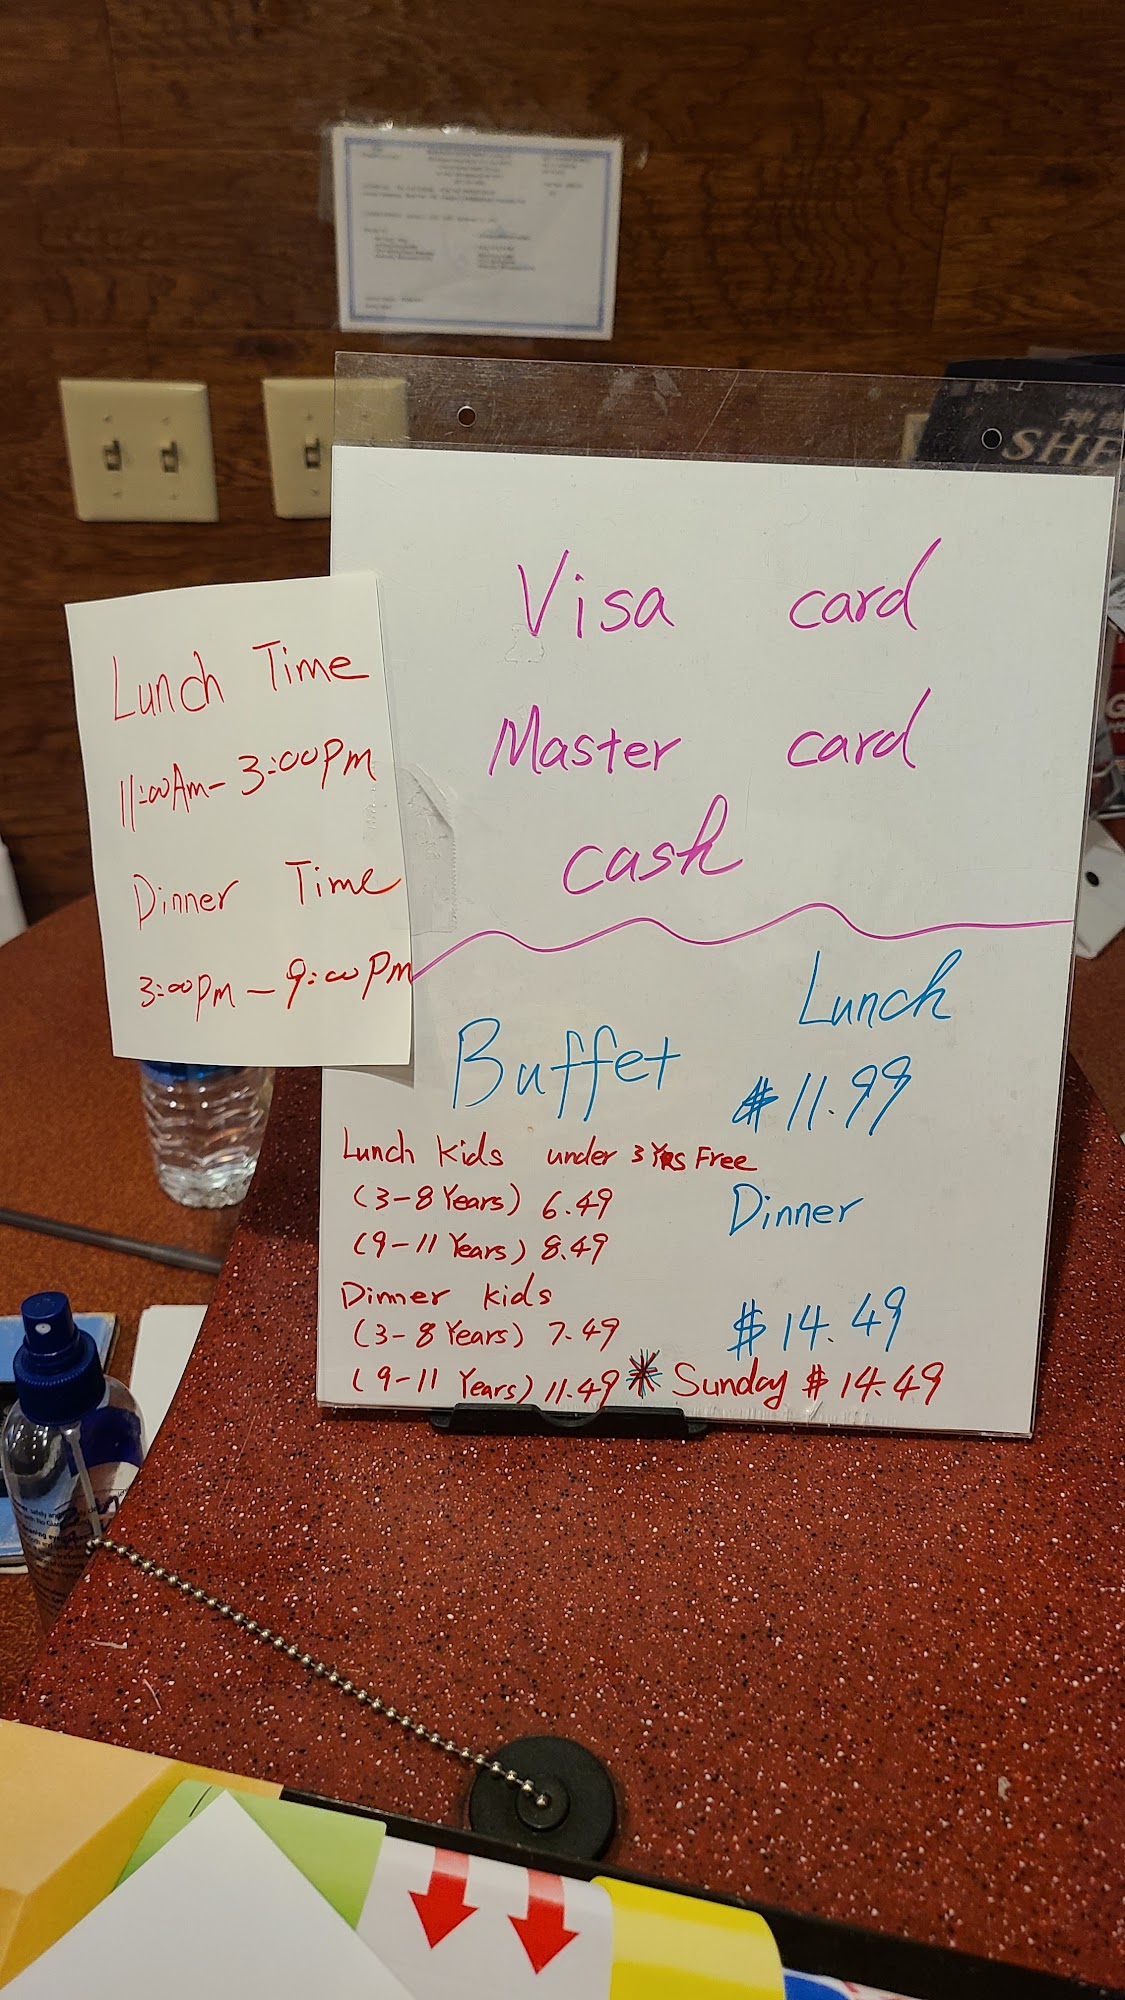 神
SHE
Visa card
Master card
cash
Lunch Time
11:00Am- 3:00Pm
Dinner Time
3:00pm - 9:00pm
Buffet
Lunch
$11.99
Dinner
$14.49
Lunch Kids under 3 Yrs Free
(3-8 Years) 6.49
(9-11 Years) 8.49
Dinner kids
(3-8 Years) 7.49
(9-11 Years) 11.49
* Sunday $14.49